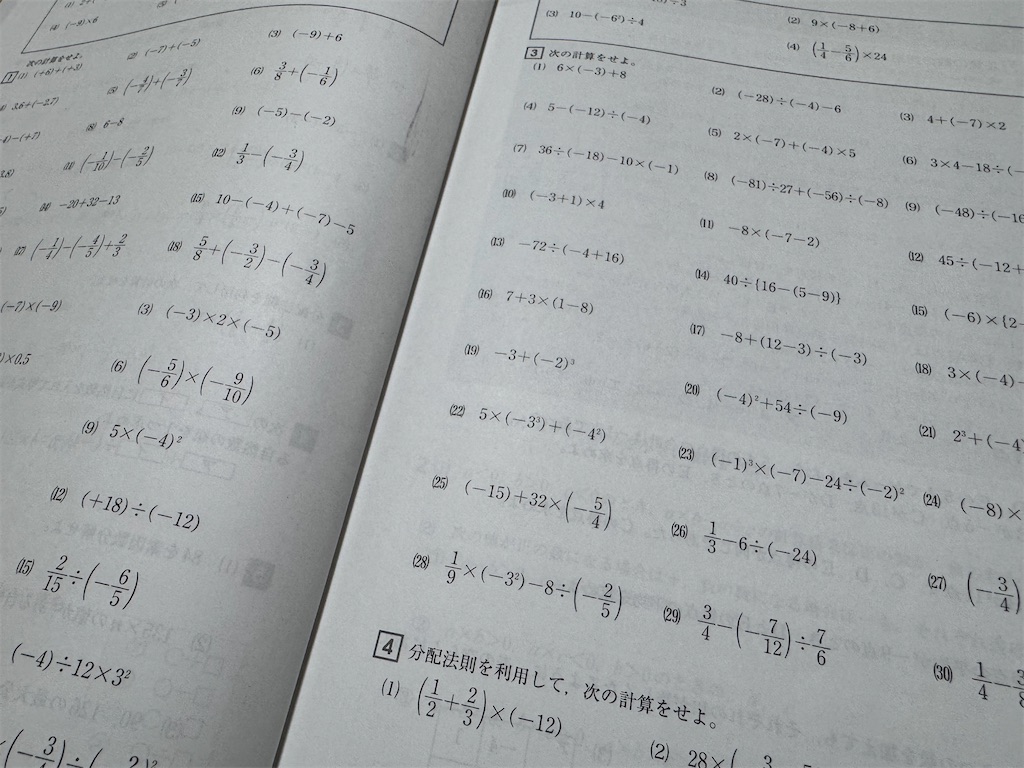 (4) (-9)×6
次の計算をせよ。
1 (1) (+6)+(+3)
(2) (-7)+(-5)
(3) (-9)+6
3.6+(-2.7)
(5) (-4/7)+(-3/7)
(6) 3/8+(-1/6)
-(+7)
(8) 6-8
(9) (-5)-(-2)
(11) (-1/10)-(-2/5)
(12) 1/3-(-3/4)
(14) -20+32-13
(15) 10-(-4)+(-7)-5
(17) (-1/4)-(-4/5)+2/3
(18) 5/8+(-3/2)-(-3/4)
(-7)×(-9)
(3) (-3)×2×(-5)
)×0.5
(6) (-5/6)×(-9/10)
(9) 5×(-4)²
(12) (+18)÷(-12)
(15) 2/15÷(-6/5)
(-4)÷12×3²
)÷3
(2) 9×(-8+6)
(3) 10-(-6²)÷4
(4) (1/4-5/6)×24
3 次の計算をせよ。
(1) 6×(-3)+8
(2) (-28)÷(-4)-6
(3) 4+(-7)×2
(4) 5-(-12)÷(-4)
(5) 2×(-7)+(-4)×5
(6) 3×4-18÷(-
(7) 36÷(-18)-10×(-1)
(8) (-81)÷27+(-56)÷(-8)
(9) (-48)÷(-16
(10) (-3+1)×4
(11) -8×(-7-2)
(12) 45÷(-12+
(13) -72÷(-4+16)
(14) 40÷{16-(5-9)}
(15) (-6)×{2-
(16) 7+3×(1-8)
(17) -8+(12-3)÷(-3)
(18) 3×(-4)-
(19) -3+(-2)³
(20) (-4)²+54÷(-9)
(21) 2³+(-4
(22) 5×(-3³)+(-4²)
(23) (-1)³×(-7)-24÷(-2)²
(24) (-8)×
(25) (-15)+32×(-5/4)
(26) 1/3-6÷(-24)
(27) (-3/4)
(28) 1/9×(-3²)-8÷(-2/5)
(29) 3/4-(-7/12)÷7/6
(30) 1/4-3/8
4 分配法則を利用して，次の計算をせよ。
(1) (1/2+2/3)×(-12)
(2) 28×(